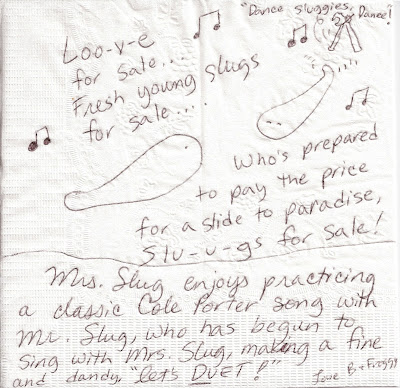 "Dance sluggies, Dance!
Loo-v-e
for sale...
Fresh young slugs
for sale....
Who's prepared
to pay the price
for a slide to paradise,
Slu-u-gs for sale!
Mrs. Slug enjoys practicing
a classic Cole Porter song with
Mr. Slug, who has begun to
sing with Mrs. Slug, making a fine
and dandy, "let's DUET!"
love B. + Froggy